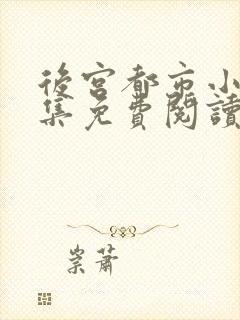 後宮都市小
集免費閱讀
崇蕭